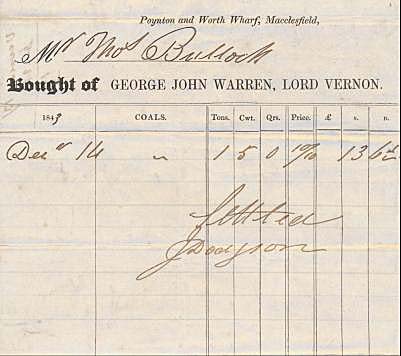 Poynton and Worth Wharf, Macclesfield,
Mr Thos Bullock
Bought of GEORGE JOHN WARREN, LORD VERNON.
1843 COALS. Tons. Cwt. Qrs. Price. £ s. D.
Decr 14 " 1 5 0 10/10 13 6½
Settled
J Dodgson